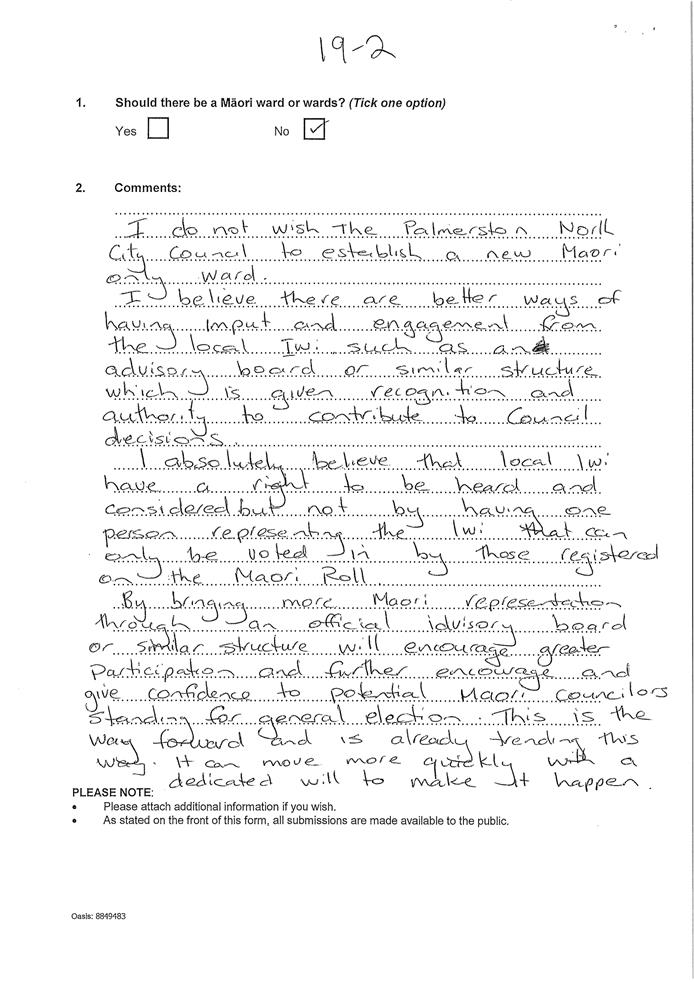 19-2
1. Should there be a Māori ward or wards? (Tick one option)
Yes No
2. Comments:
I do not wish The Palmerston North
City Council to esteblish a new Maori
only ward.
I believe there are better ways of
having input and engagement from
the local Iwi such as an
advisory board or similar structure
which is given recognition and
authority to contribute to Council
decisions.
I absolutely believe that local Iwi
have a right to be heard and
considered but not by having one
person representing the Iwi that can
only be voted in by those registered
on the Maori Roll
By bringing more Maori representation
through an official idvisory board
or similar structure will encourage greater
Participation and further encourage and
give confidence to potential Maori councilors
Standing for general election. This is the
way forward and is already trending this
way. It can move more quickly with a
dedicated will to make It happen.
PLEASE NOTE:
• Please attach additional information if you wish.
• As stated on the front of this form, all submissions are made available to the public.
Oasis: 8849483